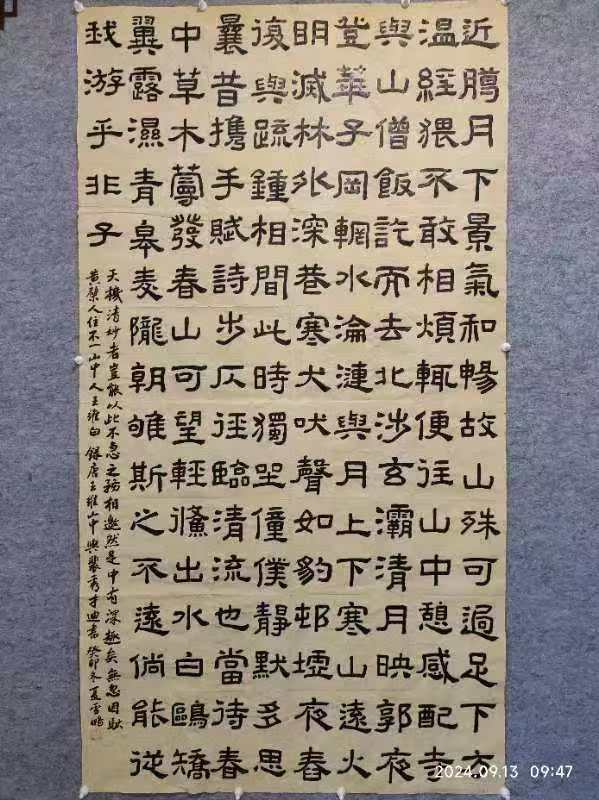 近臈月下景氣和暢故山殊可過足下方
温經猥不敢相煩輒便往山中憩感配寺
與山僧飯訖而去北涉玄灞清月映郭夜
登華子岡輞水淪漣與月上下寒山遠火
明滅林外深巷寒犬吠聲如豹邨墟夜舂
復與疏鍾相間此時獨坐僮僕靜默多思
曩昔攜手賦詩步仄徑臨清流也當待春
中草木蔓發春山可望輕鯈出水白鷗矯
翼露濕青皋麦隴朝雊斯之不遠倘能從
我游乎非子
天機清妙者豈能以此不急之務相邀然是中有深趣矣無忽因馱
黄檗人往不一山中人王維白 録唐王維山中與裴秀才迪書 癸卯冬夏雪
2024.09.13 09:47